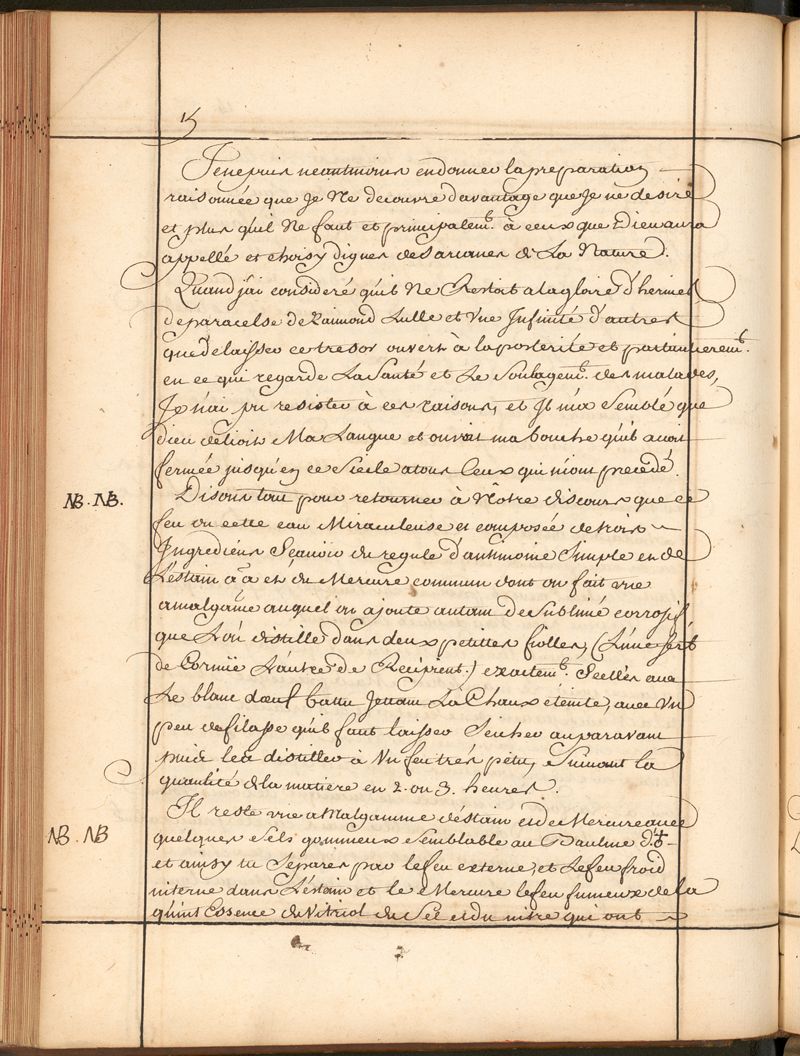 15
Je ne puis neantmoins en donner la preparation
raisonnée que Je Ne decouvre davantage que Je ne desire
et plus qu'il Ne faut et principalemt. à ceux que Dieu aura
appellé et choisy dignes des arcanes de La Nature.
Quand j'ai consideré qu'il Ne Restoit a la gloire d'hermes
de paracelse de Raimond Lulle et Vne Infinité d'autres
que de laisser ce tresor ouvert à la posterité et particulieremt.
en ce qui regarde La Santé et Le Soulagemt. des malades,
Je n'ai pu resister à ces raisons, et Il m'a Semblé que
dieu delioit Ma Langue et ouvroit ma bouche qu'il avoit
fermée jusqu'en ce Siecle a tous Ceux qui m'ont precedé.
NB. NB. Disons tout pour retourner à Nôtre discours que ce
feu ou cette eau Miraculeuse est composée de trois
Ingrediens Scavoir du regule d'antimoine Simple et de
L'éstain aã et du Mercure commun dont on fait vne
amalgame auquel on ajoute autant de Sublimé corrosif
que L'on distille dans deux petittes fiolles, (L'une sert
de Cornüe L'autre de Recipient.) exactemt. Scellés avec
Le blanc d'oeuf battu Jettant La Chaux éteinte, avec Vn
peu de filasse qu'il faut laisser Seicher auparavant
puis les distiller à Vn feu trés petit, Suivant la
quantité de la matiere en 2. ou 3. heures.
Il reste vne amalgamme d'éstain et de Mercure avec
NB. NB quelques Sels gommeux Semblable au Pauline d'♁
et ainsy tu Separes par le feu externe, et Le feu froid
interne dans L'éstain et le Mercure le feu fumeux de la
quint Essence de Vitriol du Sel et du nitre qui ont